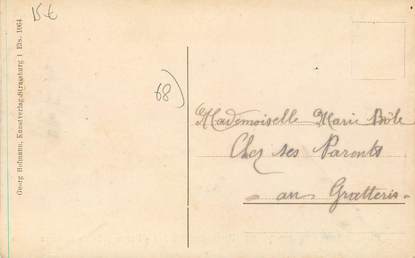 15€
68)
Georg Hofmann, Kunstverlag, Strassburg i Els. 1064
Mademoiselle Marie Bôle
Chez ses Parents
au Gratteris